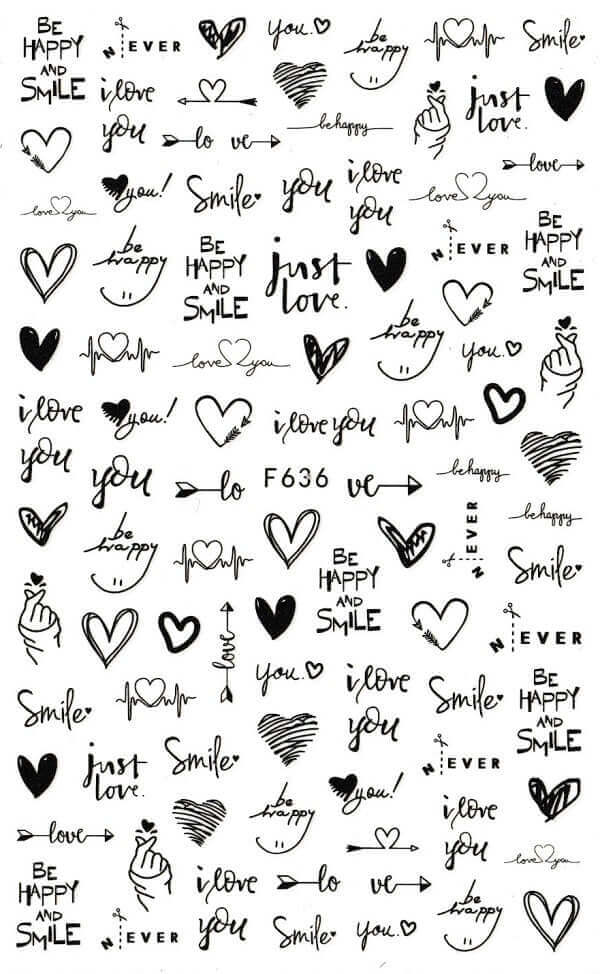 BE
HAPPY
AND
SMILE
N EVER
you.
be
happy
Smile
i love
you
lo ve
be happy
just
love.
love
love you
you!
Smile
you
i love
you
love you
N EVER
BE
HAPPY
AND
SMILE
be
happy
BE
HAPPY
AND
SMILE
just
love.
be
happy
you.
love you
i love
you
you!
i love you
you
lo
F636
ve
be happy
be happy
be
happy
N EVER
Smile
BE
HAPPY
AND
SMILE
love
N EVER
you.
i love
you
Smile
Smile
BE
HAPPY
AND
SMILE
just
love.
Smile
N EVER
you!
be
happy
i love
you
love
love you
BE
HAPPY
AND
SMILE
N EVER
i love
you
lo ve
Smile
you.
be
happy